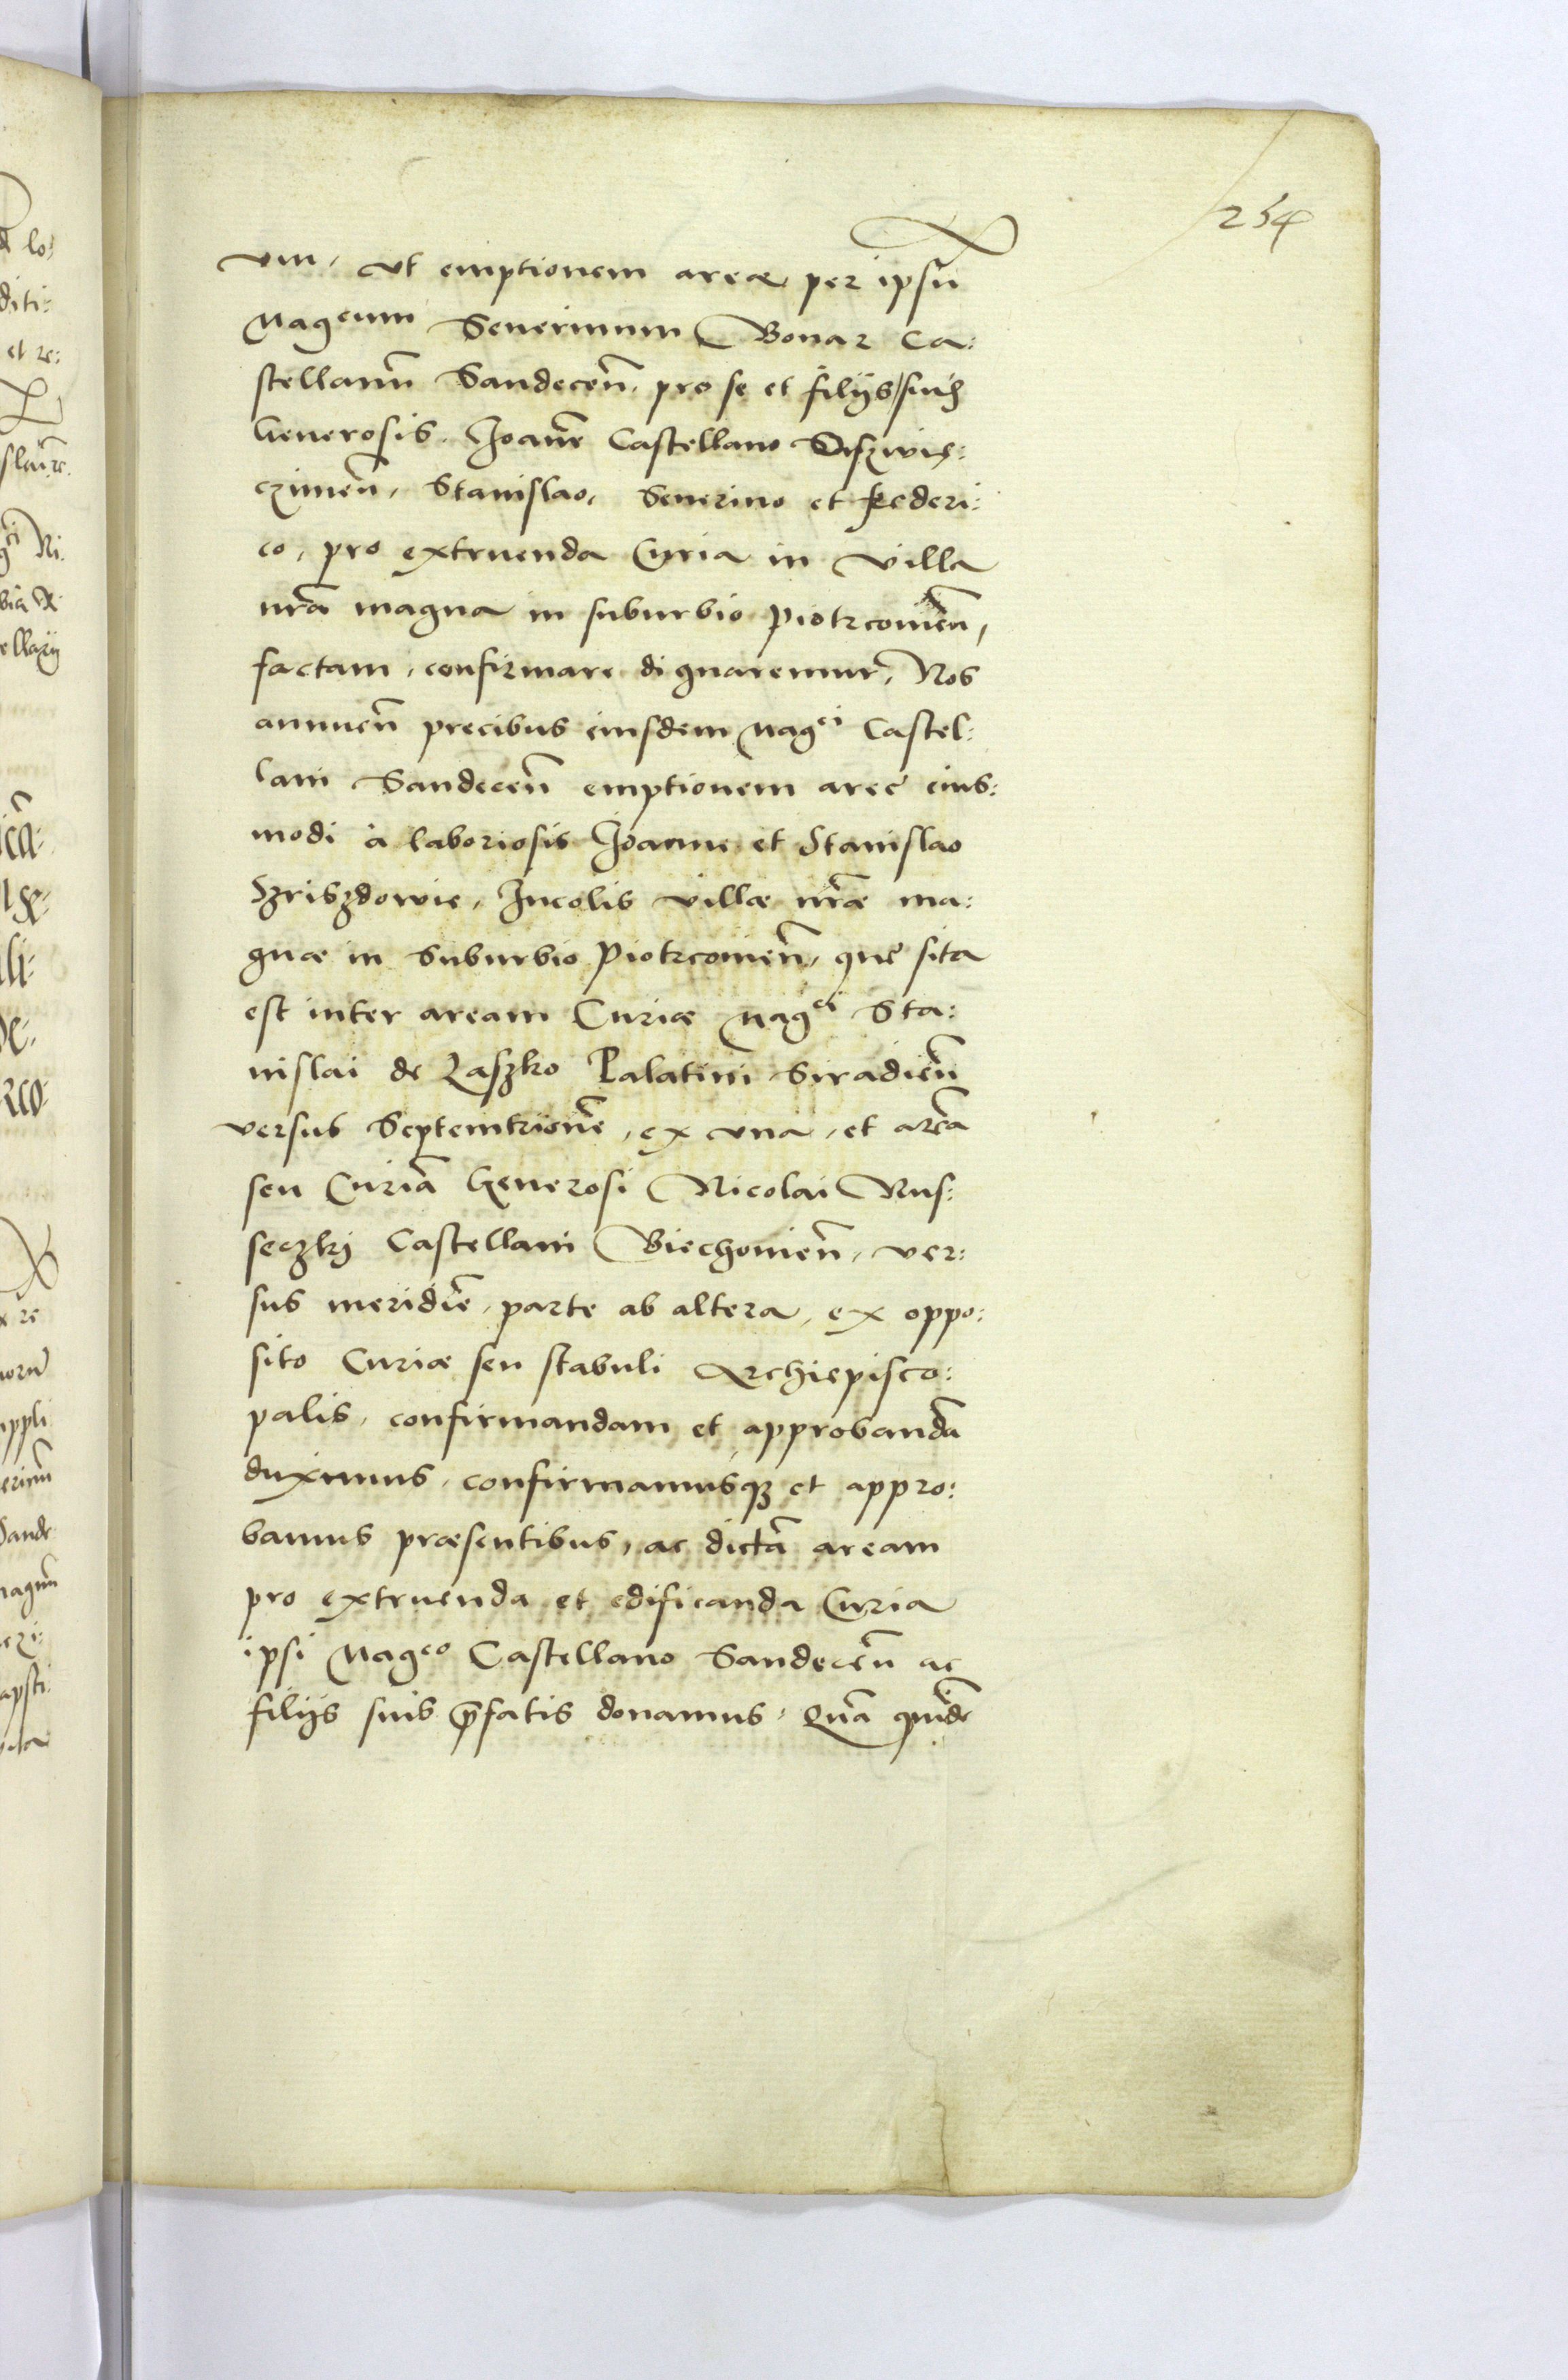 254
um, ut emptionem areæ per ipsū
Magcum Seuerinum Bonar Ca:
stellanū Sandecen̄, pro se et filijs suis
Generosis, Joanne Castellano Oszwie:
czimen̄, Stanislao, Seuerino et Federi:
co, pro extruenda Curia in villa
nr̄a magna in suburbio Piotrcouien̄,
factam, confirmare dignaremur, Nos
annuen̄ precibus eiusdem Magci Castel:
lani Sandecen̄ emptionem areę eius:
modi à laboriosis Joanne et Stanislao
Szriszdowie, Incolis villæ nr̄æ ma:
gnæ in Suburbio Piotrcouien̄, quę sita
est inter aream Curiæ Magci Sta:
nislai de Laszko Palatini Siradien̄
versus Septemtrionē, ex vna, et areā
seu Curiā Generosi Nicolai Rus:
seczkj Castellani Biechouien̄, ver:
sus meridiē, parte ab altera, ex oppo:
sito Curiæ seu stabuli Archiepisco:
palis, confirmandam et approbandā
duximus, confirmamusq; et appro:
bamus præsentibus, ac dictā aream
pro extruenda et edificanda Curia
ipsi Magco Castellano Sandecen̄ ac
filijs suis p̄fatis donamus. Quā quidē